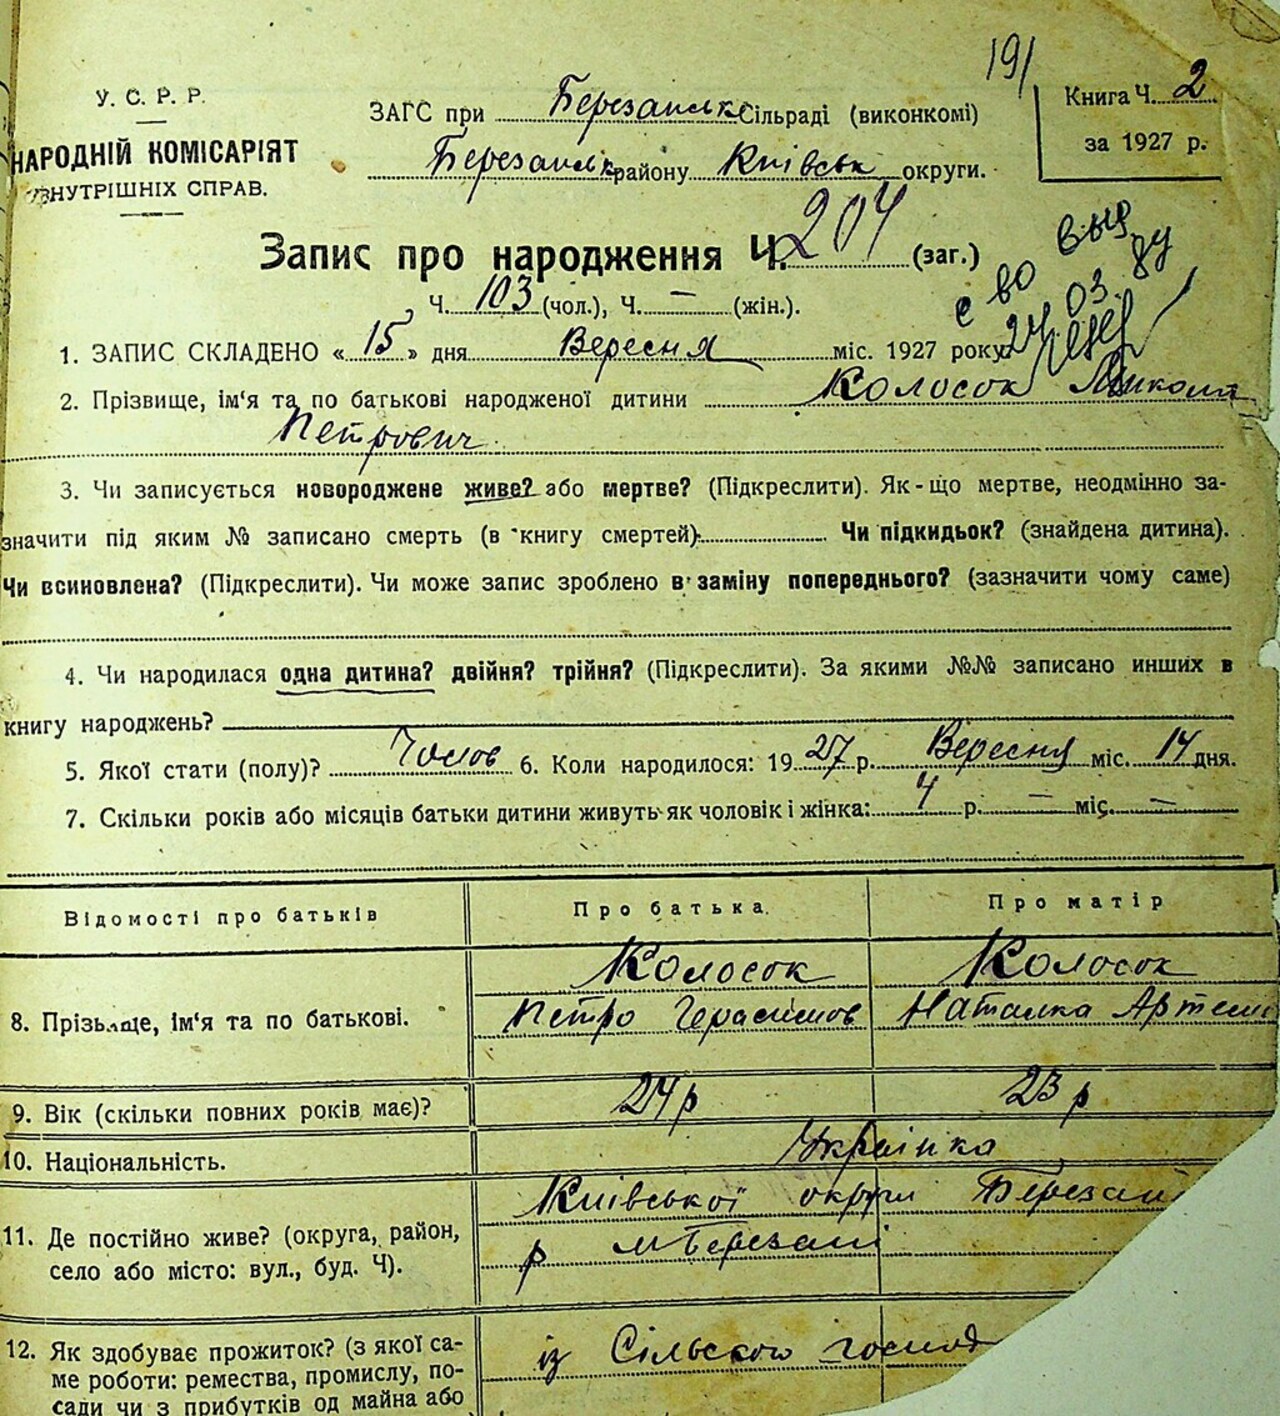 191
У. С. Р. Р.
НАРОДНІЙ КОМІСАРІЯТ
ВНУТРІШНІХ СПРАВ.
ЗАГС при Березанськ Сільраді (виконкомі)
Березанськ району Київськ округи.
Книга Ч. 2
за 1927 р.
Запис про народження Ч. 204 (заг.)
Ч. 103 (чол.), Ч. — (жін.).
с во выд
24.03.
1. ЗАПИС СКЛАДЕНО «15» дня Вересня міс. 1927 року
2. Прізвище, ім‘я та по батькові народженої дитини Колосок Микола
Петрович
3. Чи записується новороджене живе? або мертве? (Підкреслити). Як-що мертве, неодмінно за-
значити під яким № записано смерть (в книгу смертей): Чи підкидьок? (знайдена дитина).
Чи всиновлена? (Підкреслити). Чи може запис зроблено в заміну попереднього? (зазначити чому саме)
4. Чи народилася одна дитина? двійня? трійня? (Підкреслити). За якими №№ записано инших в
книгу народжень?
5. Якої стати (полу)? Чолов 6. Коли народилося: 1927 р. Вересня міс. 14 дня.
7. Скільки років або місяців батьки дитини живуть як чоловік і жінка: 4 р. — міс. —
Відомості про батьків Про батька. Про матір
8. Прізвище, ім‘я та по батькові. Колосок Колосок
Петро Герасимов Наталка Артем
9. Вік (скільки повних років має)? 24 р 23 р
10. Національність. Українка
11. Де постійно живе? (округа, район, Київської округи Березан
село або місто: вул., буд. Ч). р м Березані
12. Як здобуває прожиток? (з якої са- із Сільського господ
ме роботи: ремества, промислу, по-
сади чи з прибутків од майна або